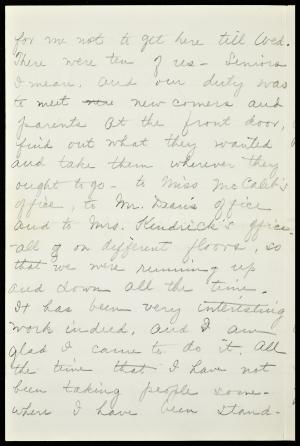 for me not to get here till Wed.
There were ten of us - Seniors
I mean, and our duty was
to meet new comers and
parents at the front door,
find out what they wanted
and take them wherever they
ought to go - to Miss McCaleb's
office, to Mr. Davis office
and to Mrs. Kendrick's office -
all of on different floors, so
that we were running up
and down all the time.
It has been very interesting
work indeed, and I am
glad I came to do it. All
the time that I have not
been taking people some-
where I have been stand-